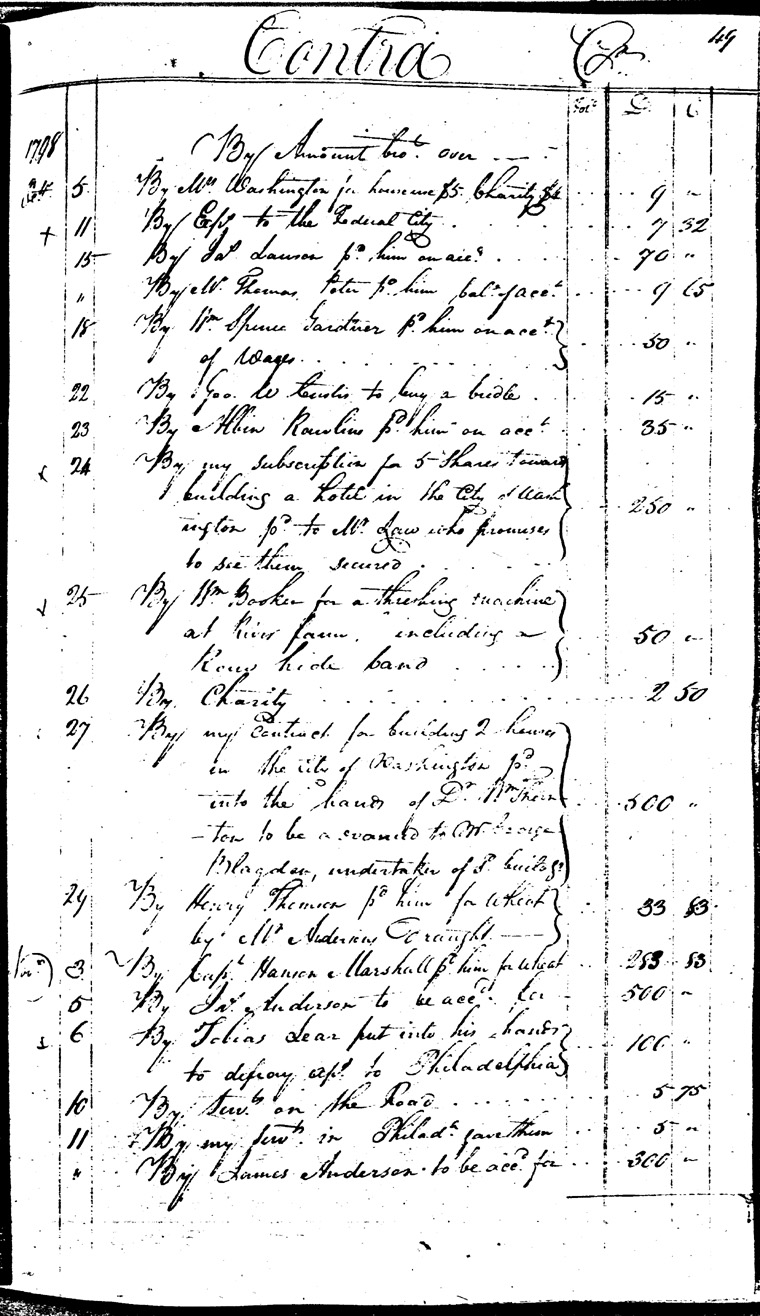 Contra Cr 49
Fol. D. C
1798
By Amount bro.t over
Oct.r 5 By Mrs. Washington for house use $5 Charity $4 9 "
+ 11 By Exp.s to the Federal City 7 32
15 By Jn.o Lawson p.d him on acc.t 70 "
" By Mr. Thomas Peter p.d him bal.e of acc.t 9 65
18 By Wm. Spence Gardiner p.d him on acc.t
of Wages 50 "
22 By Geo. W Custis to buy a bridle 15 "
23 By Albin Rawlins p.d him on acc.t 35 "
24 By my subscription for 5 Shares toward
building a hotel in the City of Wash
ington p.d to Mr. Law who promises 250 "
to see them secured
25 By Wm. Booker for a threshing machine
at River farm, including a 50 "
Raw hide band
26 By Charity 2 50
27 By my Contract for building 2 houses
in the city of Washington p.d
into the hands of Dr. Wm. Thorn 500 "
-ton to be advanced to Mr. George
Blagden, undertaker of s.d buildgs
29 By Henry Thomson p.d him for Wheat 33 83
by Mr. Andersons Draught
Nov.r 3 By Cap.t Hanson Marshall p.d him for Wheat 283 83
5 By Ja.s Anderson to be acc.d for 500 "
6 By Tobias Lear put into his hands 100 "
to defray exp.s to Philadelphia
10 By Serv.ts on the Road 5 75
11 By my Serv.ts in Philad.a gave them 5 "
" By James Anderson to be acc.d for 300 "